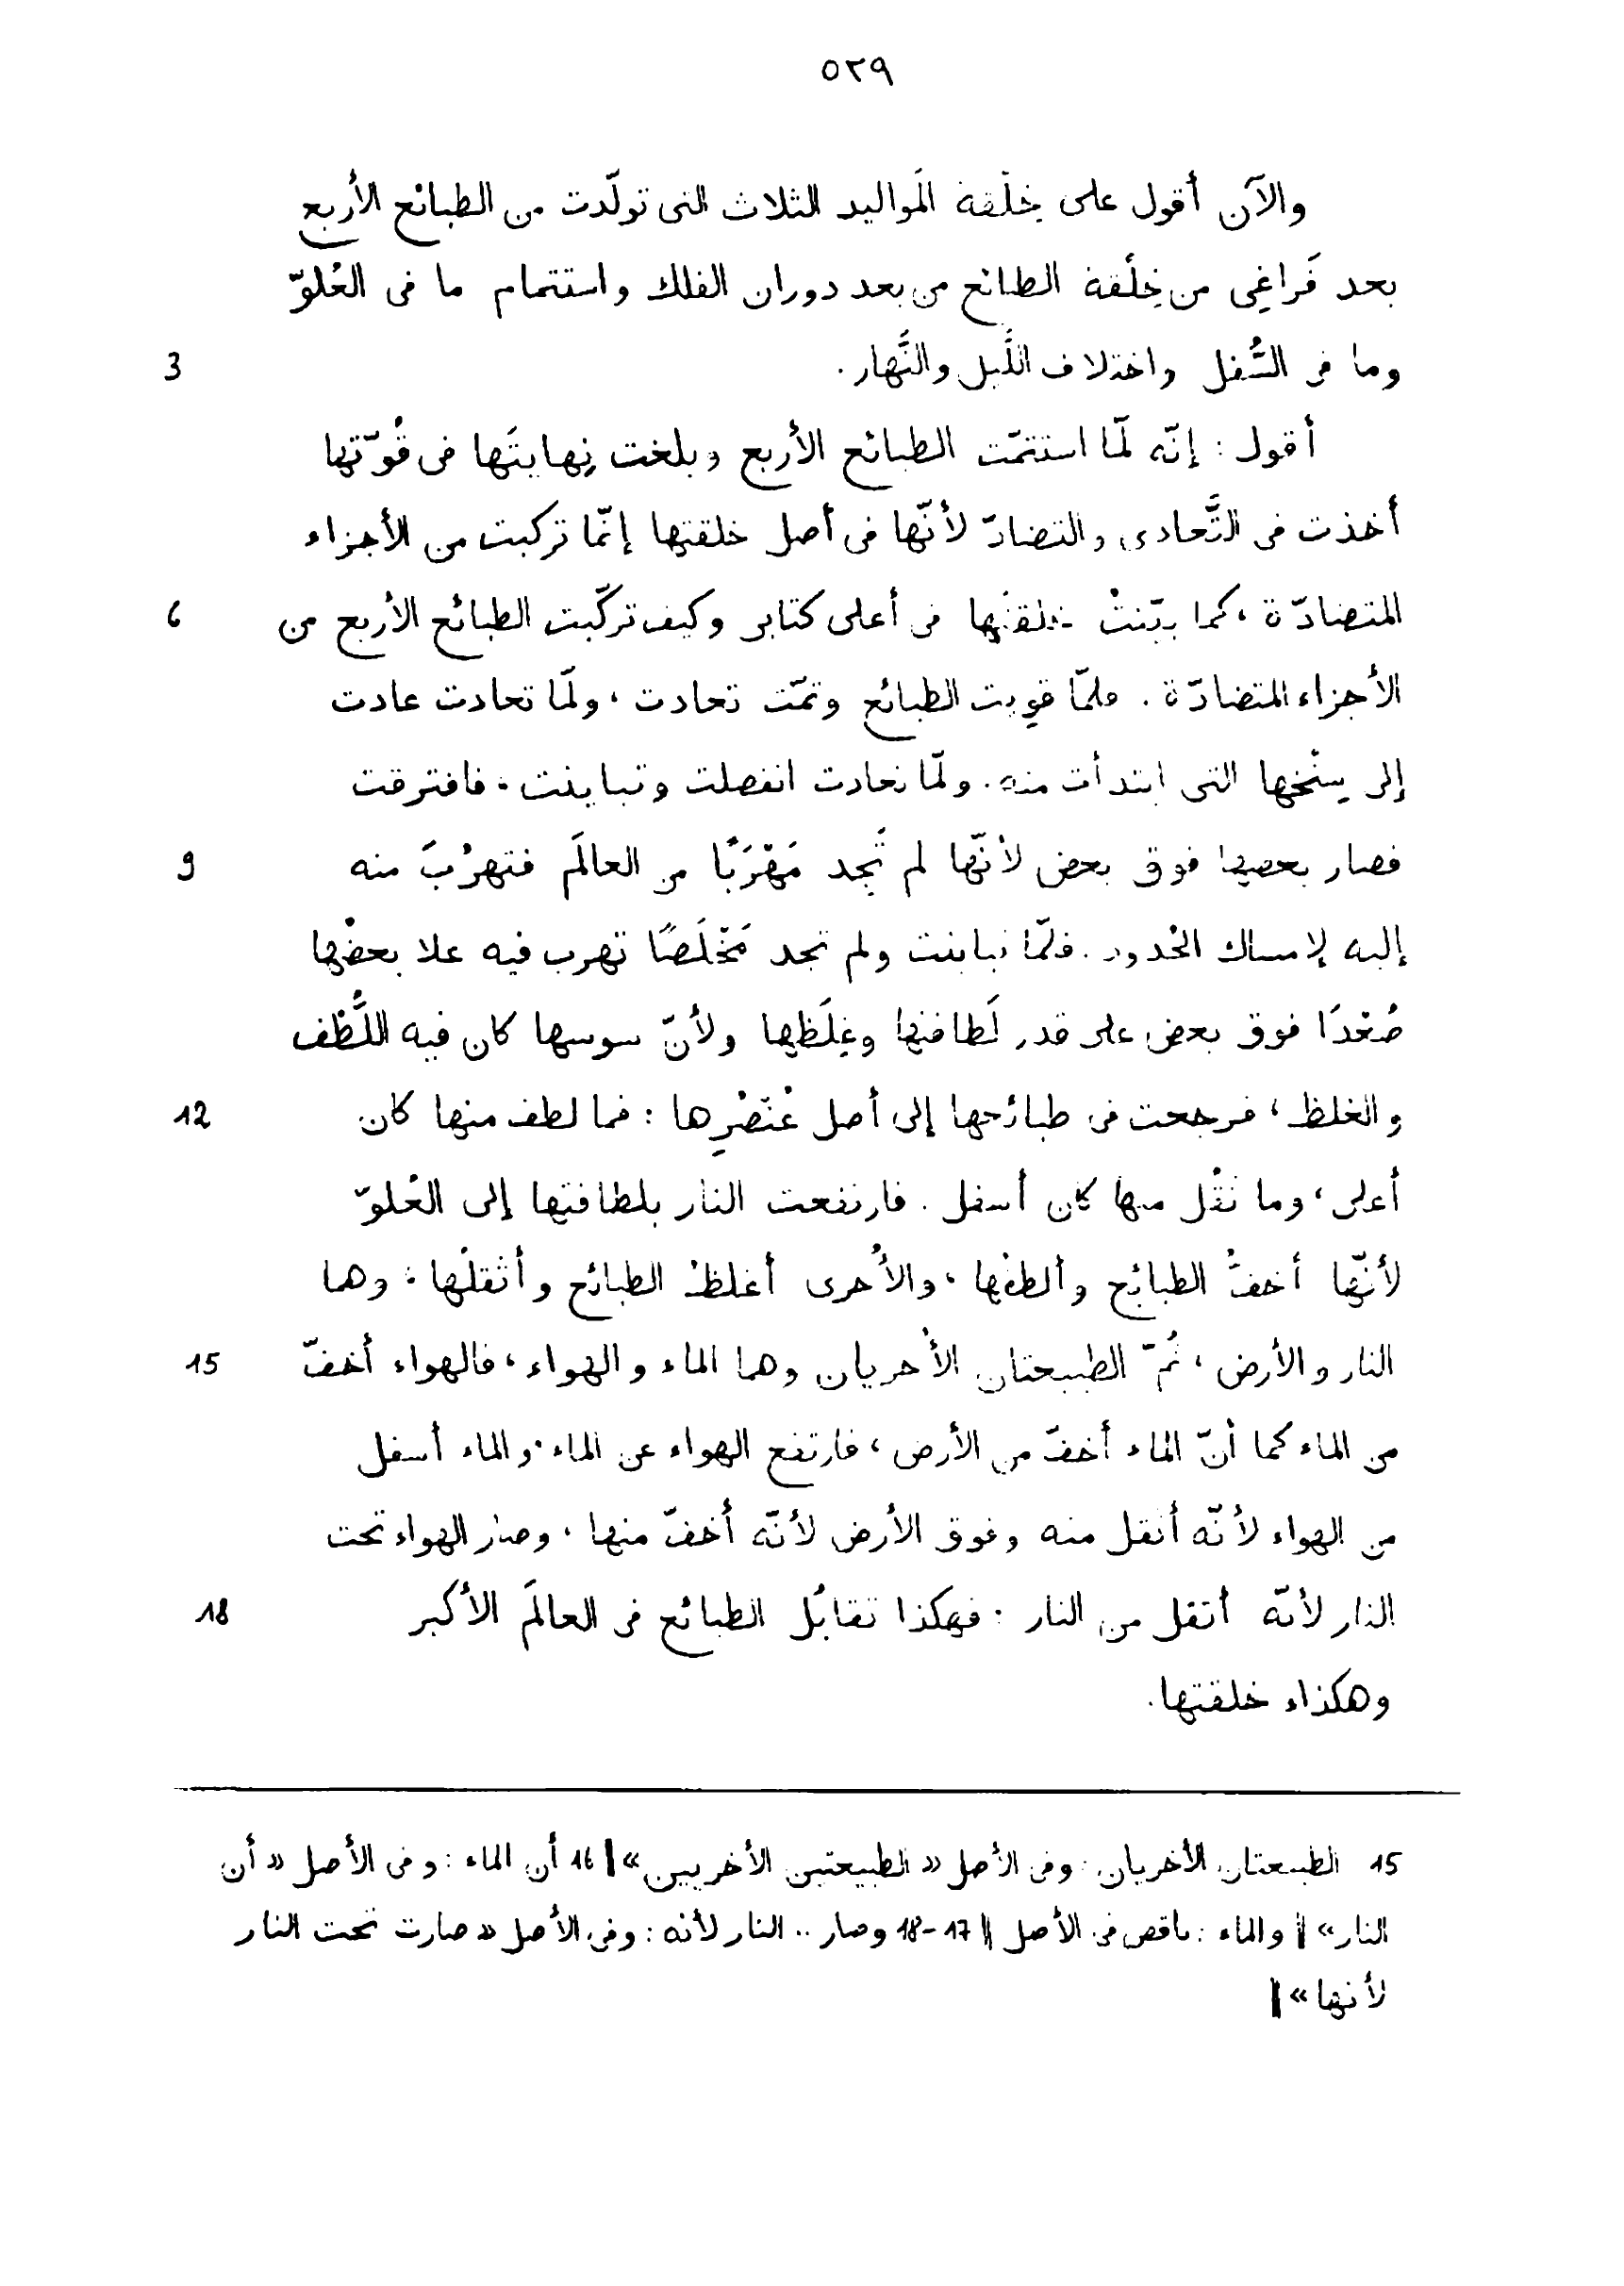 ٥٢٩
والآن أقول على خِلْقة المَواليد الثلاث التى تولّدت من الطبائع الأربع
بعد فَراغِى من خِلْقة الطبائع من بعد دوران الفلك واستتمام ما فى العُلوّ
3 وما فى السُّفل واختلاف اللَّيل والنَّهار.
أقول : إنّه لمّا استتمّت الطبائع الأربع وبلغت نِهايتَها فى قُوّتها
أخذت فى التَّعادى والتضادّ لأنّها فى أصل خلقتها إنّما تركبت من الأجزاء
6 المتضادّة ، كما بيّنتُ خلقتها فى أعلى كتابى وكيف تركّبت الطبائع الأربع من
الأجزاء المتضادّة . فلمّا قوِيت الطبائع وتمّت تعادت ، ولمّا تعادت عادت
إلى سِنْخها التى ابتدأت منه. ولمّا تعادت انفصلت وتباينت . فافترقت
9 فصار بعضها فوق بعض لأنّها لم تَجِد مَهْرَبًا من العالَم فتهرُبَ منه
إليه لإمساك الحُدود . فلمّا تباينت ولم تجد مَخْلَصًا تهرب فيه علا بعضُها
صُعْدًا فوق بعض على قدر لَطافتها وغِلَظِها ولأنّ سوسها كان فيه اللُّطْف
12 والغلظ ، فرجعت فى طبائعها إلى أصل عُنْصُرِها : فما لطف منها كان
أعلى ، وما ثقُل منها كان أسفل . فارتفعت النار بلطافتها إلى العُلوّ
لأنّها أخفُّ الطبائع وألطفُها ، والأُخرى أغلظُ الطبائع وأثقلُها : وهما
15 النار والأرض ، ثُمّ الطبيعتان الأُخريان وهما الماء والهواء ، فالهواء أخفّ
من الماء كما أنّ الماء أخفّ من الأرض ، فارتفع الهواء عن الماء . والماء أسفل
من الهواء لأنّه أثقل منه وفوق الأرض لأنّه أخفّ منها . وصار الهواء تحت
18 النار لأنّه أثقل من النار : فهكذا تقابُل الطبائع فى العالَم الأكبر
وهكذاء خلقتها.
15 الطبيعتان الأخريان : وفى الأصل « الطبيعتين الأخريين » ‖ 16 أن الماء : وفى الأصل « أن
النار » ‖ والماء : ناقص فى الأصل ‖ 17-18 وصار .. النار لأنه : وفى الأصل « صارت تحت النار
لأنها » ‖